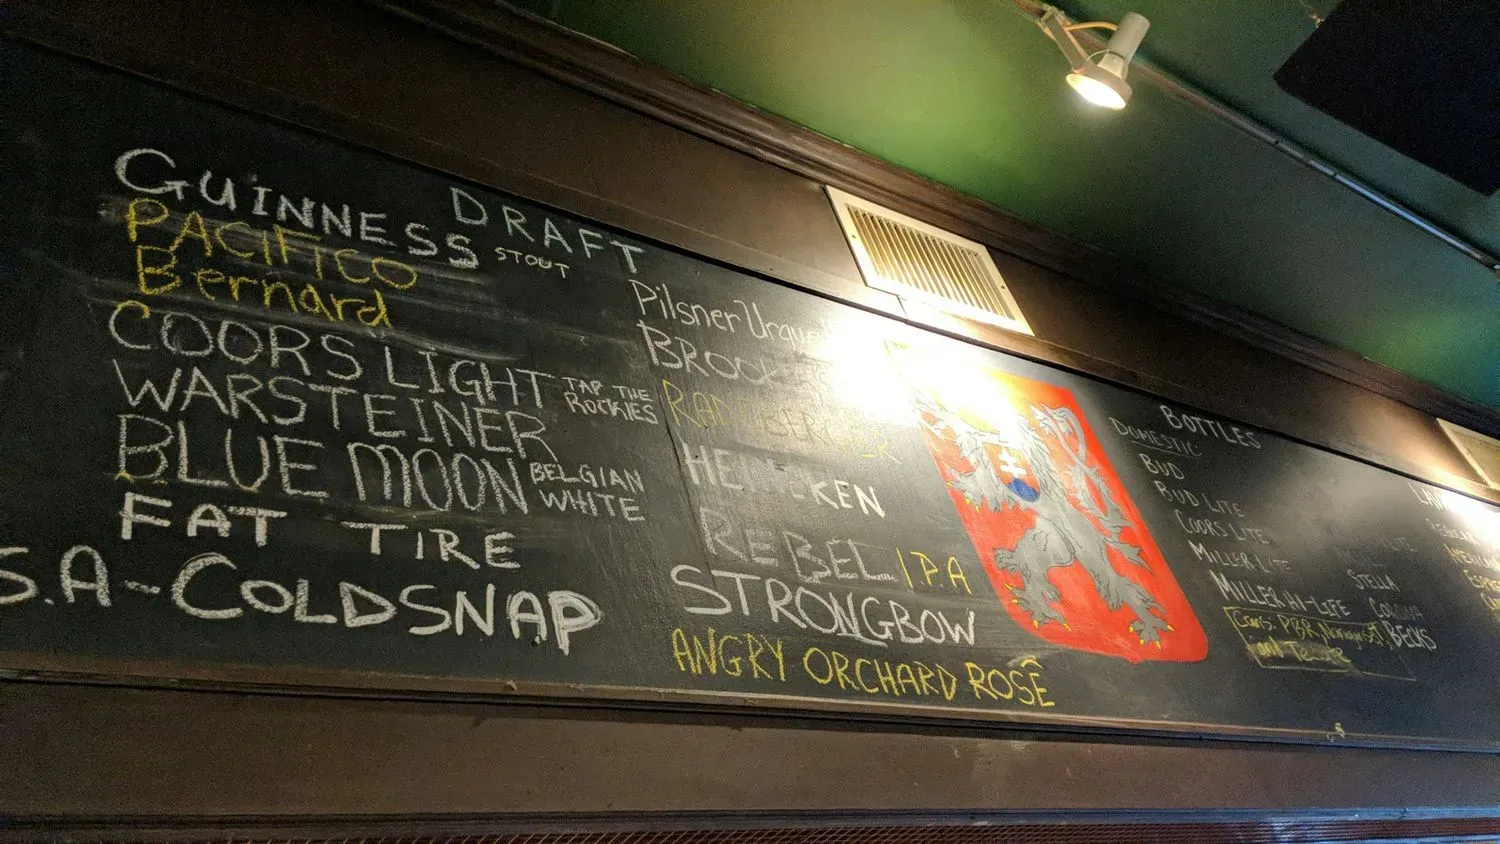 DRAFT
GUINNESS STOUT
PACIFICO
Bernard
COORS LIGHT TAP THE ROCKIES
WARSTEINER
BLUE MOON BELGIAN WHITE
FAT TIRE
S.A-COLDSNAP
Pilsner
REBEL I.P.A
STRONGBOW
ANGRY ORCHARD ROSÊ
BOTTLES
DOMESTIC
BUD
BUD LITE
COORS LITE
MILLER LITE
MILLER HI-LIFE
Cans. PBR,
and
STELLA
CORONA
BECKS